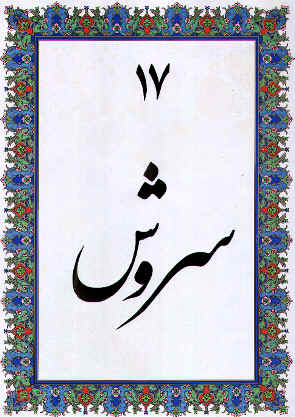 ۱۷
سروش